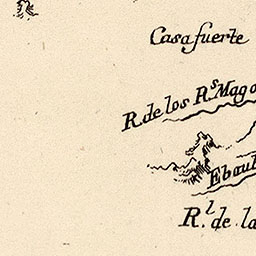 Casafuerte
R. de los R.s Mago
Ebaul
R.l de la